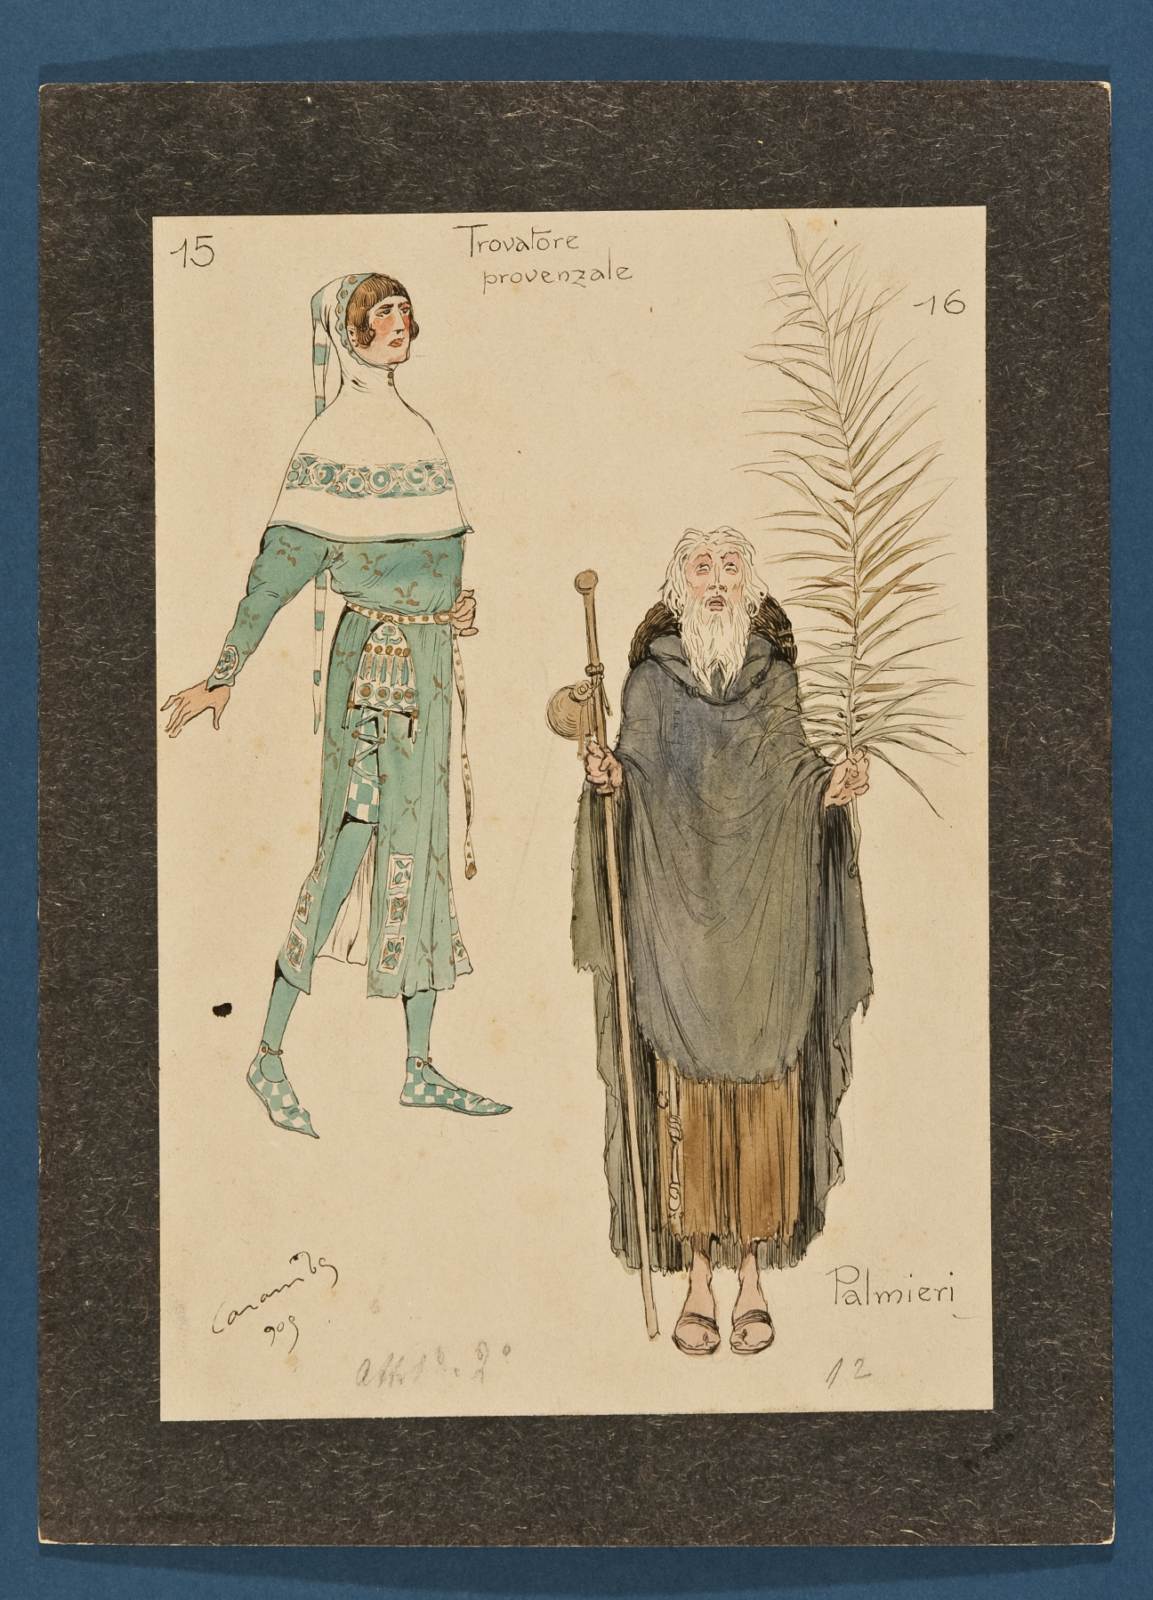 15
Trovatore
provenzale
16
Palmieri
Caramba
909
Atto 2°
12